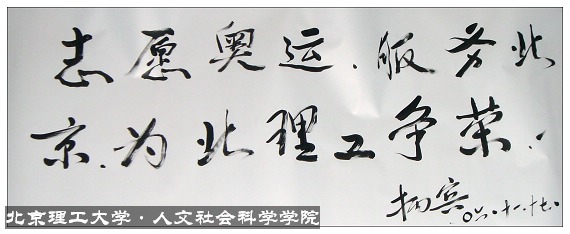 志愿奥运、服务北
京、为北理工争荣!
宾 〇六.十一.十七.
北京理工大学·人文社会科学学院